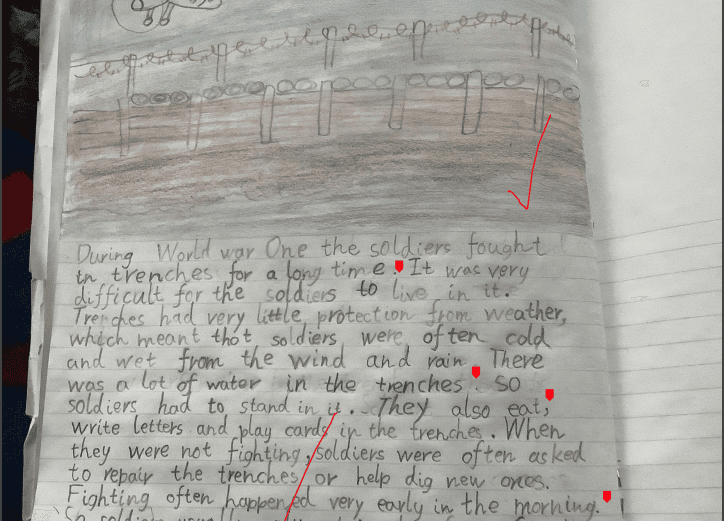 During World war One the soldiers fought
in trenches for a long time. It was very
difficult for the soldiers to live in it.
Trenches had very little protection from weather,
which meant that soldiers were often cold
and wet from the wind and rain. There
was a lot of water in the trenches. So
soldiers had to stand in it. They also eat,
write letters and play cards in the trenches. When
they were not fighting, soldiers were often asked
to repair the trenches or help dig new ones.
Fighting often happened very early in the morning.
So soldiers usually